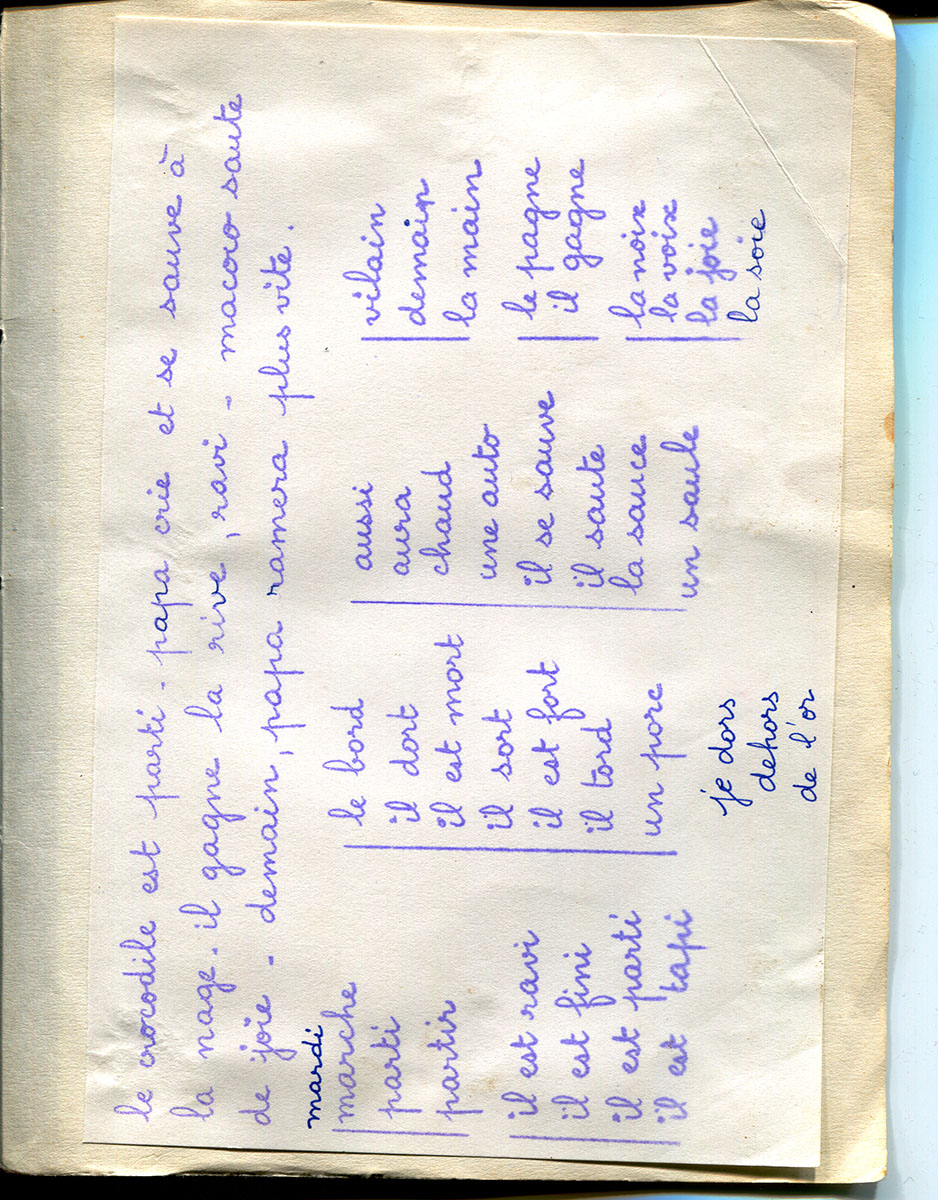 le crocodile est parti - papa crie et se sauve à
la nage. il gagne la rive, ravi - macoco saute
de joie - demain, papa ramera plus vite.
mardi
marche
parti
partir
il est ravi
il est fini
il est parti
il est tapi
le bord
il dort
il est mort
il sort
il est fort
il tord
un porc
je dors
dehors
de l'or
aussi
aura
chaud
une auto
il se sauve
il saute
la sauce
un saule
vilain
demain
la main
le pagne
il gagne
la noix
la voix
la joie
la soie